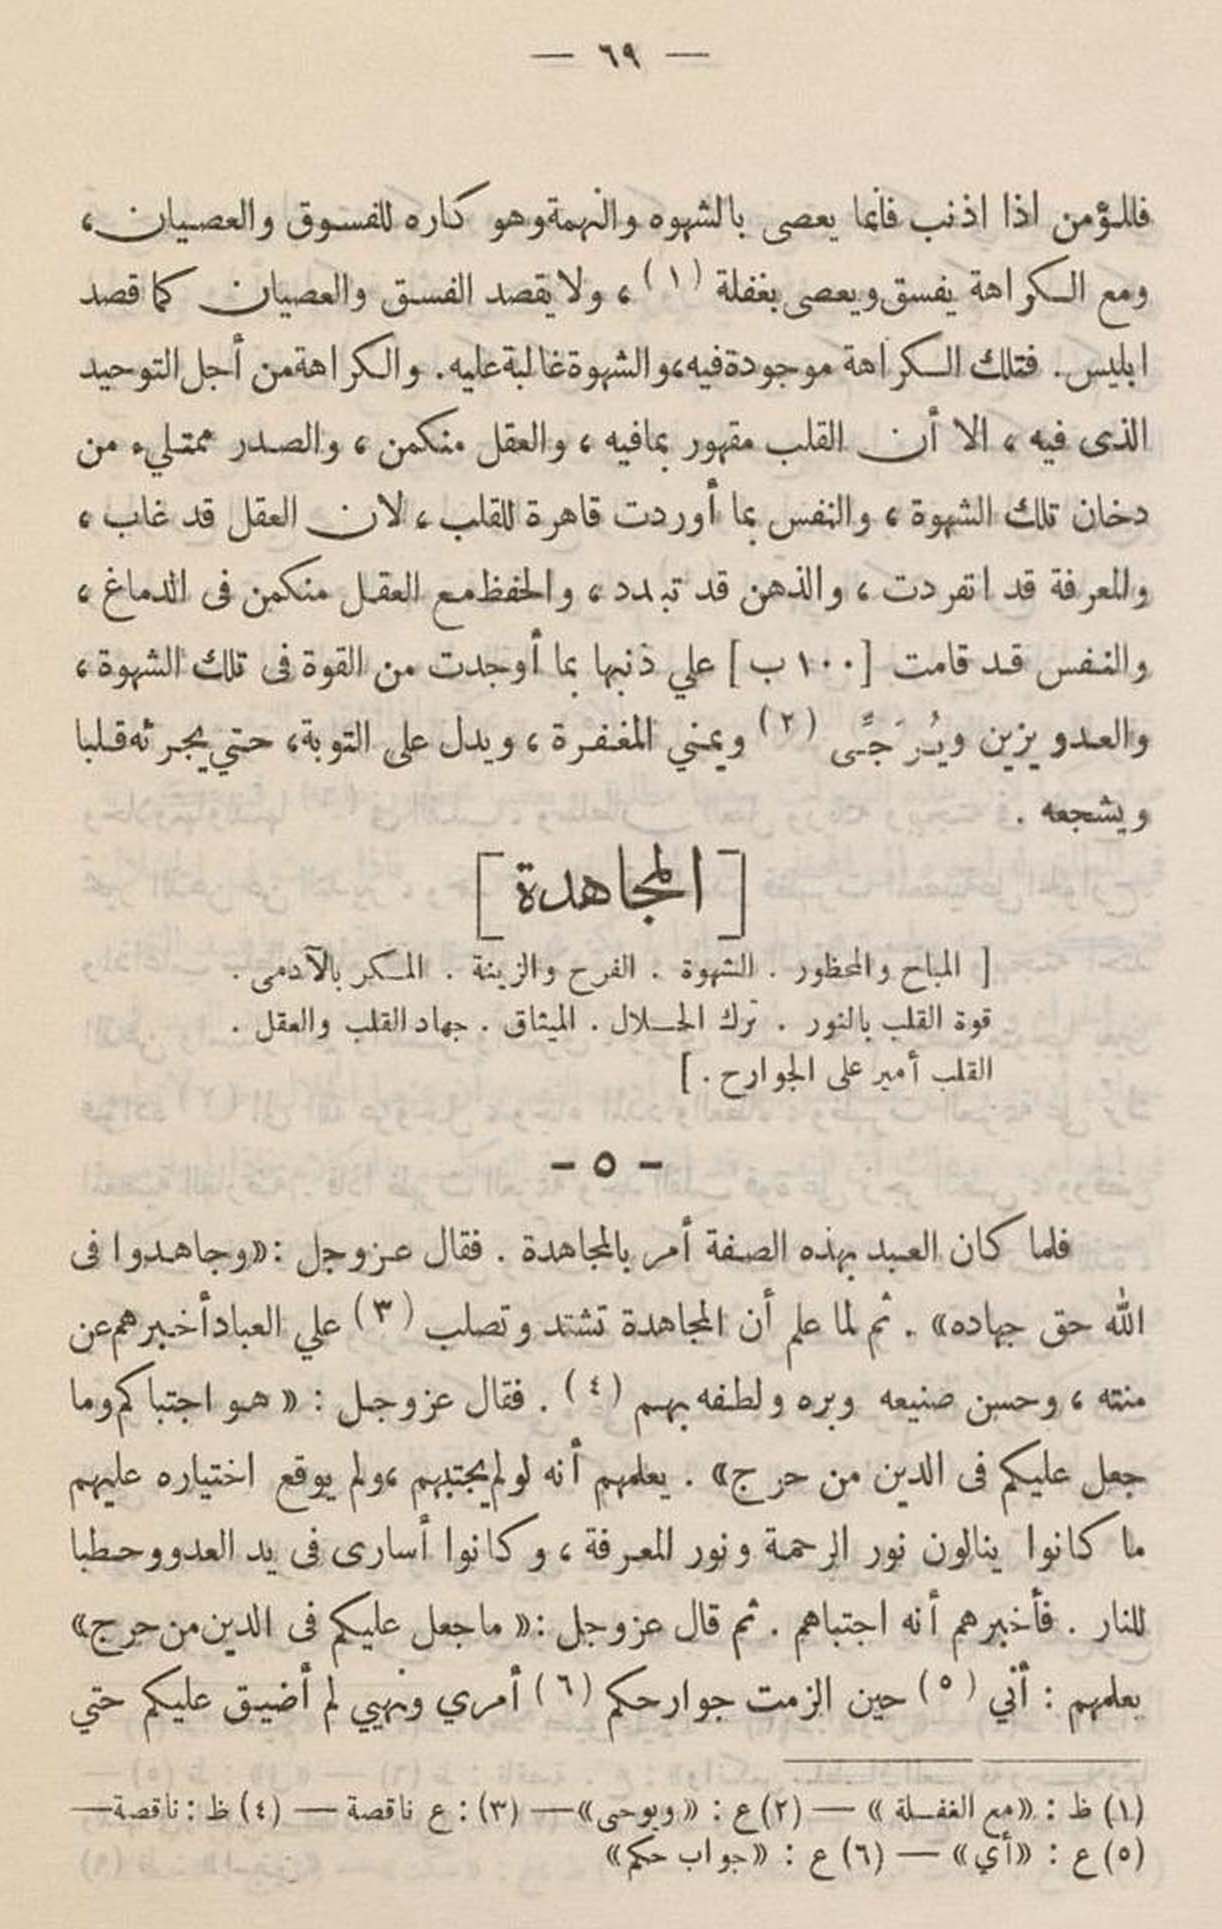 — ٦٩ —
فالمؤمن اذا اذنب فانما يعصى بالشهوه والنهمة وهو كاره للفسوق والعصيان ،
ومع الكراهة يفسق ويعصى بغفلة (١) ، ولا يقصد الفسق والعصيان كما قصد
ابليس . فتلك الكراهة موجودة فيه ، والشهوة غالبة عليه . والكراهة من أجل التوحيد
الذى فيه ، الا أن القلب مقهور بما فيه ، والعقل منكمن ، والصدر ممتليء من
دخان تلك الشهوة ، والنفس بما أوردت قاهرة للقلب ، لان العقل قد غاب ،
والمعرفة قد انفردت ، والذهن قد تبدد ، والحفظ مع العقل منكمن فى الدماغ ،
والنفس قد قامت [ ١٠٠ ب ] علي ذنبها بما أوجدت من القوة فى تلك الشهوة ،
والعدو يزين ويُرَجًّى (٢) ويمني المغفرة ، ويدل على التوبة ، حتي يجرئه قلبا
ويشجعه .
[ المجاهدة ]
[ المباح والمحظور . الشهوة . الفرح والزينة . المكر بالآدمى .
قوة القلب بالنور . ترك الحلال . الميثاق . جهاد القلب والعقل .
القلب أمير على الجوارح . ]
- ٥ -
فلما كان العبد بهذه الصفة أمر بالمجاهدة . فقال عز وجل : «وجاهدوا فى
الله حق جهاده» . ثم لما علم أن المجاهدة تشتد وتصلب (٣) علي العباد أخبرهم عن
منته ، وحسن صنيعه وبره ولطفه بهم (٤) . فقال عز وجل : « هو اجتباكم وما
جعل عليكم فى الدين من حرج» . يعلمهم أنه لو لم يجتبهم ، ولم يوقع اختياره عليهم
ما كانوا ينالون نور الرحمة ونور المعرفة ، وكانوا أسارى فى يد العدو وحطبا
للنار . فأخبرهم أنه اجتباهم . ثم قال عز وجل : « ما جعل عليكم فى الدين من حرج»
يعلمهم : أني (٥) حين الزمت جوارحكم (٦) أمري ونهيي لم أضيق عليكم حتي
(١) ظ : «مع الغفلة » — (٢) ع : «ويوحى» — (٣) : ع ناقصة — (٤) ظ : ناقصة —
(٥) ع : «أي» — (٦) ع : «جواب حكم»